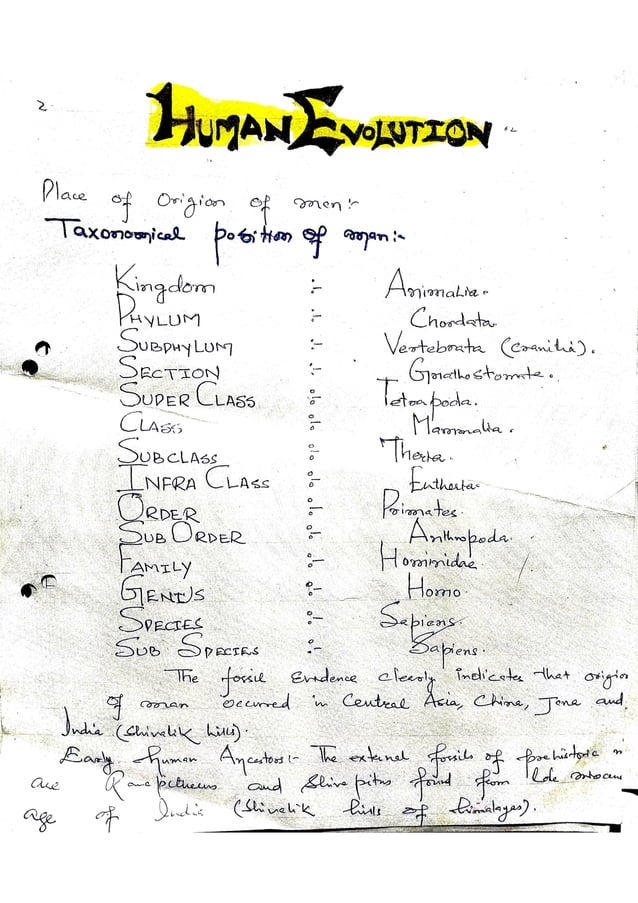 2.
HUMAN EVOLUTION
Place of Origion of men:-
Taxonomical position of man:-
Kingdom :- Animalia.
PHYLUM :- Chordata.
SUBPHYLUM :- Vertebrata (Cranitia).
SECTION :- Gnathostomata.
SUPER CLASS :- Tetrapoda.
CLASS :- Mammalia.
SUBCLASS :- Theria.
INFRA CLASS :- Eutheria.
ORDER :- Primates.
SUB ORDER :- Anthropoda.
FAMILY :- Hominidae
GENIUS :- Homo.
SPECIES :- Sapiens.
SUB SPECIES :- Sapiens.
The fossil Evidence clearly indicates that origion
of man occurred in Central Asia, China, Java and
India (Shivalik hills).
Early human Ancestors:- The external fossils of prehistoric
are and found from late
age of India (Shivalik hills of himalayes).